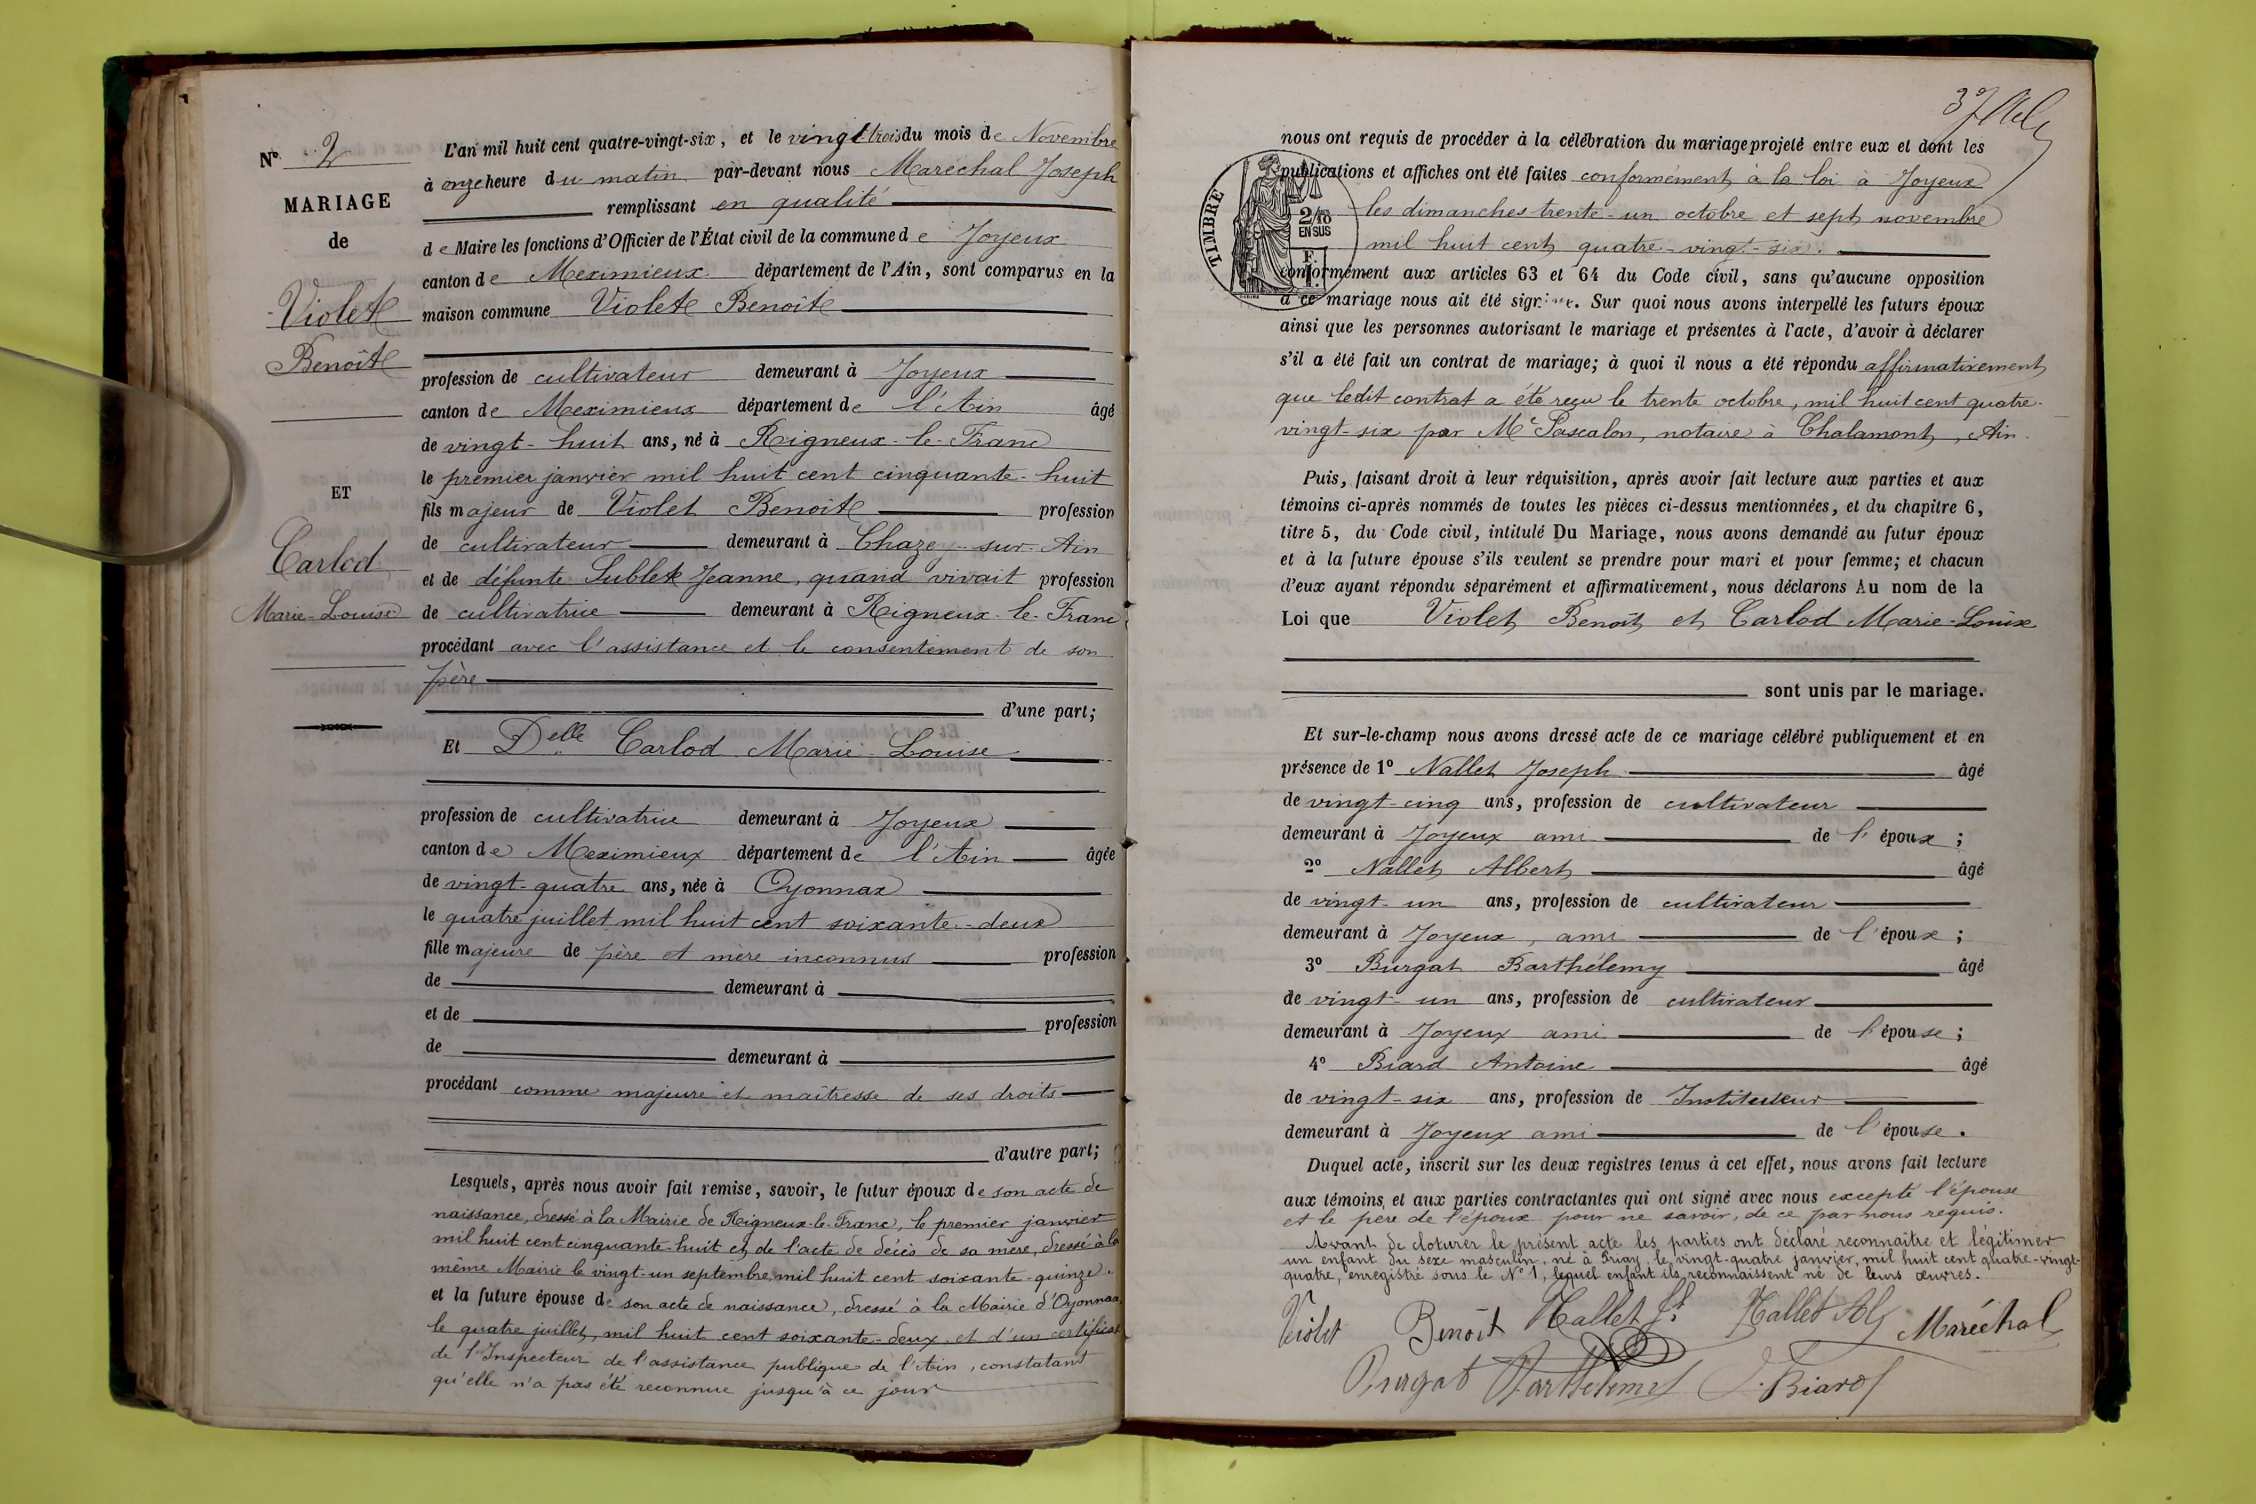 N° 2
MARIAGE
de
Violet
Benoît
ET
Carlod
Marie-Louise
L'an mil huit cent quatre-vingt-six, et le vingt-trois du mois de Novembre
à onze heure du matin par-devant nous Maréchal Joseph
remplissant en qualité
de Maire les fonctions d'Officier de l'État civil de la commune de Joyeux
canton de Meximieux département de l'Ain, sont comparus en la
maison commune Violet Benoît
profession de cultivateur demeurant à Joyeux
canton de Meximieux département de l'Ain âgé
de vingt-huit ans, né à Rigneux-le-Franc
le premier janvier mil huit cent cinquante-huit
fils majeur de Violet Benoît profession
de cultivateur demeurant à Chazey-sur-Ain
et de défunte Sublet Jeanne, quand vivait profession
de cultivatrice demeurant à Rigneux-le-Franc
procédant avec l'assistance et le consentement de son
père
d'une part;
Et Delle Carlod Marie-Louise
profession de cultivatrice demeurant à Joyeux
canton de Meximieux département de l'Ain âgée
de vingt-quatre ans, née à Oyonnax
le quatre juillet mil huit cent soixante-deux
fille majeure de père et mère inconnus profession
de demeurant à
et de profession
de demeurant à
procédant comme majeure et maîtresse de ses droits
d'autre part;
Lesquels, après nous avoir fait remise, savoir, le futur époux de son acte de
naissance, dressé à la Mairie de Rigneux-le-Franc, le premier janvier
mil huit cent cinquante-huit et de l'acte de décès de sa mère, dressé à la
même Mairie le vingt-un septembre mil huit cent soixante-quinze.
et la future épouse de son acte de naissance, dressé à la Mairie d'Oyonnax,
le quatre juillet, mil huit cent soixante-deux et d'un certificat
de l'Inspecteur de l'assistance publique de l'Ain, constatant
qu'elle n'a pas été reconnue jusqu'à ce jour
TIMBRE
2/10
EN SUS
nous ont requis de procéder à la célébration du mariage projeté entre eux et dont les
publications et affiches ont été faites conformément à la loi à Joyeux
les dimanches trente-un octobre et sept novembre
mil huit cent quatre-vingt-six.
conformément aux articles 63 et 64 du Code civil, sans qu'aucune opposition
à ce mariage nous ait été signifiée. Sur quoi nous avons interpellé les futurs époux
ainsi que les personnes autorisant le mariage et présentes à l'acte, d'avoir à déclarer
s'il a été fait un contrat de mariage; à quoi il nous a été répondu affirmativement
que ledit contrat a été reçu le trente octobre, mil huit cent quatre-
vingt-six par Me Pascalon, notaire à Chalamont, Ain.
Puis, faisant droit à leur réquisition, après avoir fait lecture aux parties et aux
témoins ci-après nommés de toutes les pièces ci-dessus mentionnées, et du chapitre 6,
titre 5, du Code civil, intitulé Du Mariage, nous avons demandé au futur époux
et à la future épouse s'ils veulent se prendre pour mari et pour femme; et chacun
d'eux ayant répondu séparément et affirmativement, nous déclarons Au nom de la
Loi que Violet Benoît et Carlod Marie-Louise
sont unis par le mariage.
Et sur-le-champ nous avons dressé acte de ce mariage célébré publiquement et en
présence de 1° Nallet Joseph âgé
de vingt-cinq ans, profession de cultivateur
demeurant à Joyeux ami de l'époux;
2° Nallet Albert âgé
de vingt-un ans, profession de cultivateur
demeurant à Joyeux, ami de l'époux;
3° Burgat Barthélemy âgé
de vingt-un ans, profession de cultivateur
demeurant à Joyeux ami de l'épouse;
4° Biard Antoine âgé
de vingt-six ans, profession de Instituteur
demeurant à Joyeux ami de l'épouse.
Duquel acte, inscrit sur les deux registres tenus à cet effet, nous avons fait lecture
aux témoins et aux parties contractantes qui ont signé avec nous excepté l'épouse
et le père de l'époux pour ne savoir, de ce par nous requis.
Avant de cloturer le présent acte les parties ont déclaré reconnaître et légitimer
un enfant du sexe masculin, né à Priay, le vingt-quatre janvier, mil huit cent quatre-vingt-
quatre, enregistré sous le N° 1, lequel enfant ils reconnaissent né de leurs œuvres.
Violet Benoit Nallet Jh Nallet Al Maréchal
Burgat Barthélemy Biard